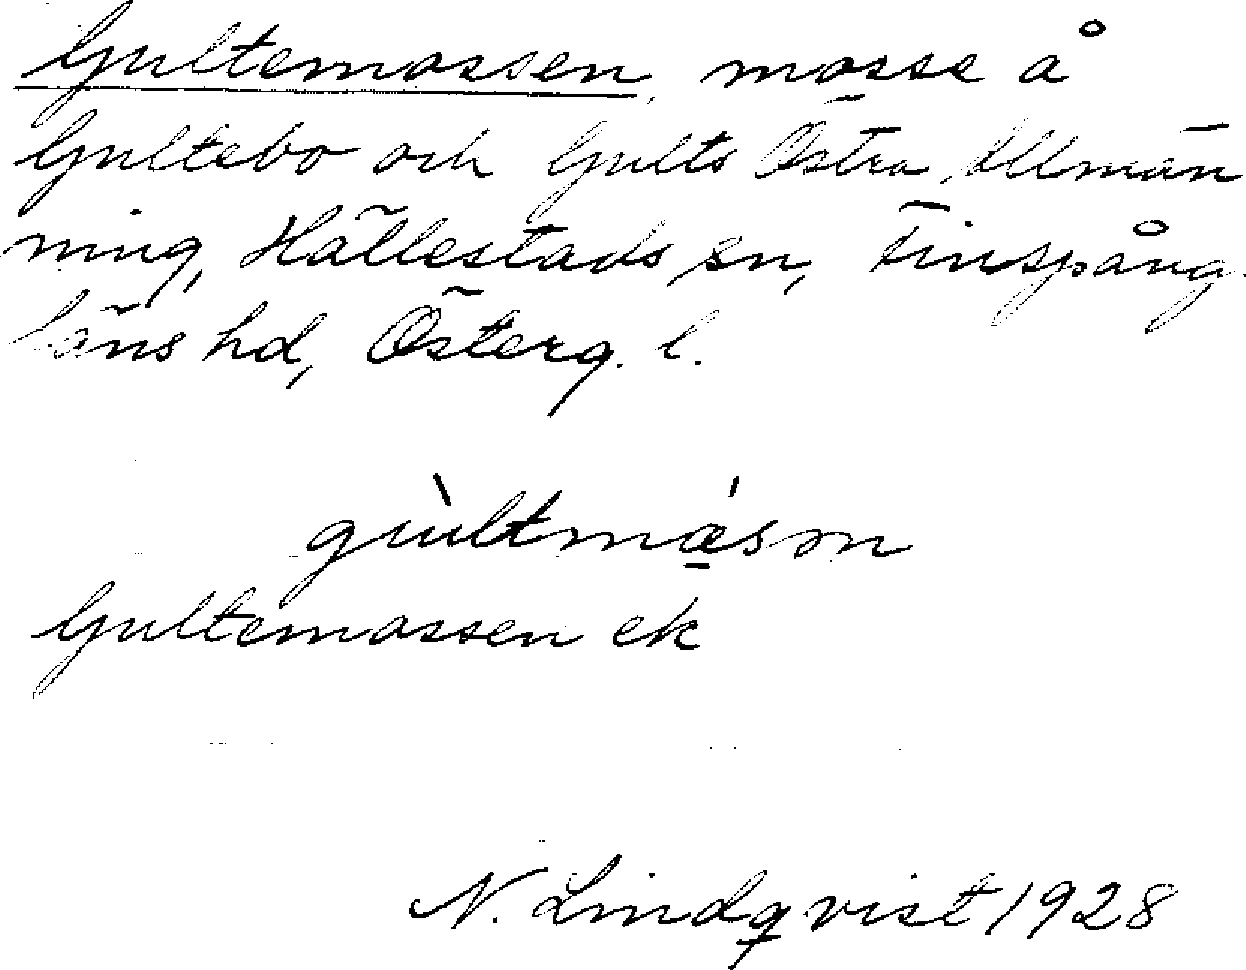 Gultemossen, mosse å
Gultebo och Gults Östra Allmän
ning, Hällestads sn, Finspång
läns hd, Österg. l.
Gultemossen ek
N. Lindqvist 1928